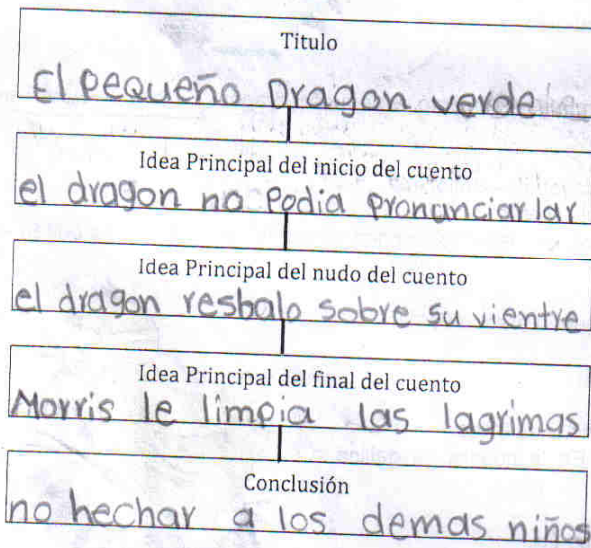 Titulo
El pequeño Dragon verde
Idea Principal del inicio del cuento
el dragon no podia pronanciar lar
Idea Principal del nudo del cuento
el dragon resbalo sobre su vientre
Idea Principal del final del cuento
Morris le limpia las lagrimas
Conclusión
no hechar a los demas niños